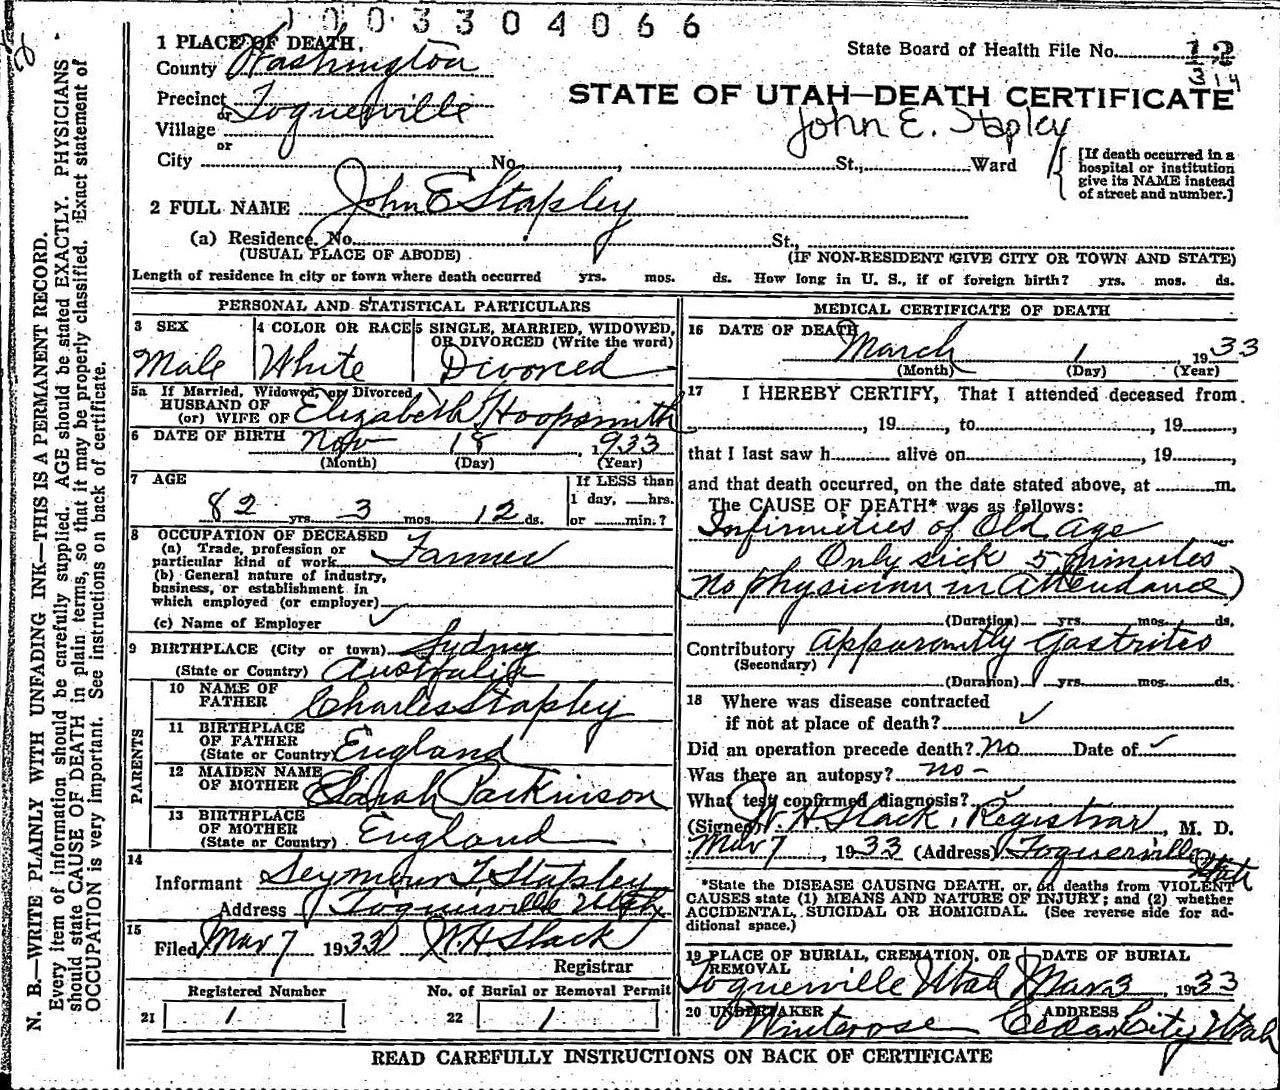 1003304066
1 PLACE OF DEATH,
State Board of Health File No. 12
314
County Washington
Precinct Toquerville
or
Village
or
STATE OF UTAH—DEATH CERTIFICATE
John E. Stapley
City No. St., Ward
[If death occurred in a
hospital or institution
give its NAME instead
of street and number.]
2 FULL NAME John E Stapley
(a) Residence. No. St.,
(USUAL PLACE OF ABODE) (IF NON-RESIDENT GIVE CITY OR TOWN AND STATE)
Length of residence in city or town where death occurred yrs. mos. ds. How long in U. S., if of foreign birth? yrs. mos. ds.
PERSONAL AND STATISTICAL PARTICULARS
3 SEX 4 COLOR OR RACE 5 SINGLE, MARRIED, WIDOWED,
OR DIVORCED (Write the word)
Male White Divorced
5a If Married, Widowed, or Divorced
HUSBAND OF
(or) WIFE OF Elizabeth Hoopsmith
6 DATE OF BIRTH Nov 18, 1933
(Month) (Day) (Year)
7 AGE
82 yrs. 3 mos. 12 ds.
If LESS than
1 day, hrs.
or min.?
8 OCCUPATION OF DECEASED
(a) Trade, profession or
particular kind of work Farmer
(b) General nature of industry,
business, or establishment in
which employed (or employer)
(c) Name of Employer ✓
9 BIRTHPLACE (City or town) Sydney
(State or Country) Australia
PARENTS
10 NAME OF
FATHER Charles Stapley
11 BIRTHPLACE
OF FATHER
(State or Country) England
12 MAIDEN NAME
OF MOTHER Sarah Parkinson
13 BIRTHPLACE
OF MOTHER
(State or Country) England
14
Informant Seymour T. Stapley
Address Toquerville Utah
15
Filed Mar 7 1933 W. H. Slack
Registrar
Registered Number No. of Burial or Removal Permit
21 1 22 1
MEDICAL CERTIFICATE OF DEATH
16 DATE OF DEATH
March 1, 1933
(Month) (Day) (Year)
17 I HEREBY CERTIFY, That I attended deceased from
, 19 , to , 19 ,
that I last saw h alive on , 19 ,
and that death occurred, on the date stated above, at m.
The CAUSE OF DEATH* was as follows:
Infirmities of Old Age
Only sick 5 minutes
(No physician in Attendance)
(Duration) yrs. mos. ds.
Contributory Apparantly Gastrites
(Secondary)
(Duration) yrs. mos. ds.
18 Where was disease contracted
if not at place of death? ✓
Did an operation precede death? No Date of ✓
Was there an autopsy? no -
What test confirmed diagnosis? ✓
(Signed) W. H. Slack, Registrar, M. D.
Mar 7, 1933 (Address) Toquerville Utah
*State the DISEASE CAUSING DEATH, or, on deaths from VIOLENT
CAUSES state (1) MEANS AND NATURE OF INJURY; and (2) whether
ACCIDENTAL, SUICIDAL OR HOMICIDAL. (See reverse side for ad-
ditional space.)
19 PLACE OF BURIAL, CREMATION, OR
REMOVAL DATE OF BURIAL
Toquerville Utah Mar 3, 1933
20 UNDERTAKER ADDRESS
Winterose Cedar City, Utah
READ CAREFULLY INSTRUCTIONS ON BACK OF CERTIFICATE
N. B.—WRITE PLAINLY WITH UNFADING INK—THIS IS A PERMANENT RECORD.
Every item of information should be carefully supplied. AGE should be stated EXACTLY. PHYSICIANS
should state CAUSE OF DEATH in plain terms, so that it may be properly classified. Exact statement of
OCCUPATION is very important. See instructions on back of certificate.